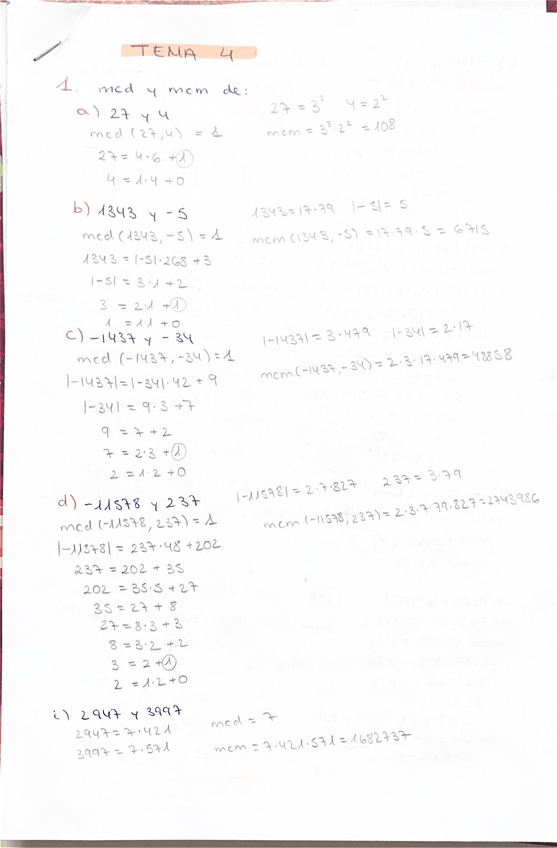 TEMA 4
1. mcd y mcm de:
a) 27 y 4
27 = 3³ 4 = 2²
mcd (27,4) = 1
mcm = 3³·2² = 108
27 = 4·6 + 1
4 = 1·4 + 0
b) 1343 y -5
1343 = 17·79 |-5| = 5
mcd (1343, -5) = 1
mcm (1343, -5) = 17·79·5 = 6715
1343 = |-5|·268 + 3
|-5| = 3·1 + 2
3 = 2·1 + 1
1 = 1·1 + 0
c) -1437 y -34
|-1437| = 3·479 |-34| = 2·17
mcd (-1437, -34) = 1
mcm (-1437, -34) = 2·3·17·479 = 48858
|-1437| = |-34|·42 + 9
|-34| = 9·3 + 7
9 = 7 + 2
7 = 2·3 + 1
2 = 1·2 + 0
d) -11578 y 237
|-11578| = 2·7·827 237 = 3·79
mcd (-11578, 237) = 1
mcm (-11578, 237) = 2·3·7·79·827 = 2743986
|-11578| = 237·48 + 202
237 = 202 + 35
202 = 35·5 + 27
35 = 27 + 8
27 = 8·3 + 3
8 = 3·2 + 2
3 = 2 + 1
2 = 1·2 + 0
i) 2947 y 3997
2947 = 7·421
mcd = 7
3997 = 7·571
mcm = 7·421·571 = 1682737